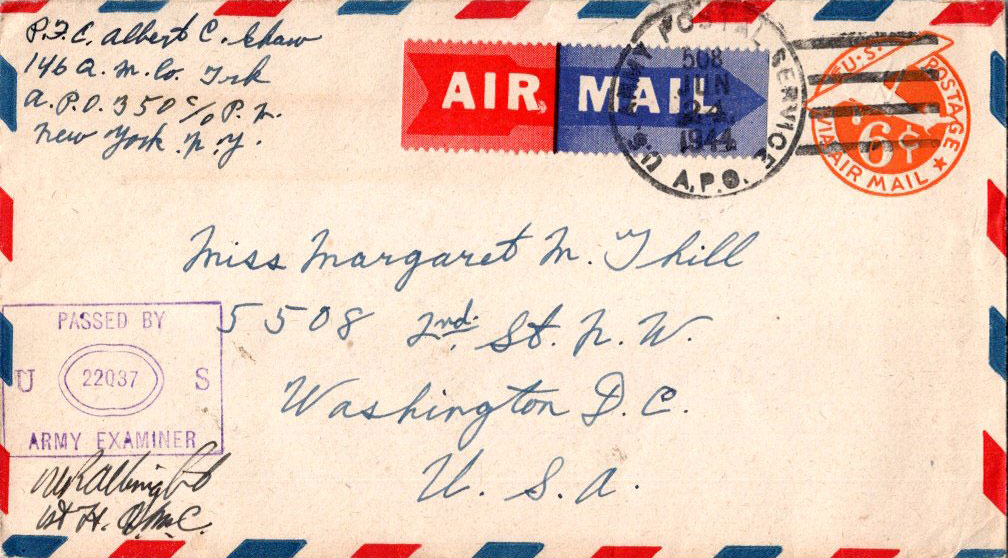 P.F.C. Albert C. Shaw
146 Q.M. Co. Trk
A.P.O. 350 c/o P.M.
New York N.Y.
AIR MAIL
U.S. ARMY POSTAL SERVICE
A.P.O.
508
JUN
24
1944
U.S. POSTAGE
6¢
VIA AIR MAIL
Miss Margaret M. Thill
5508 2nd. St. N.W.
Washington D.C.
U.S.A.
PASSED BY
U 22037 S
ARMY EXAMINER